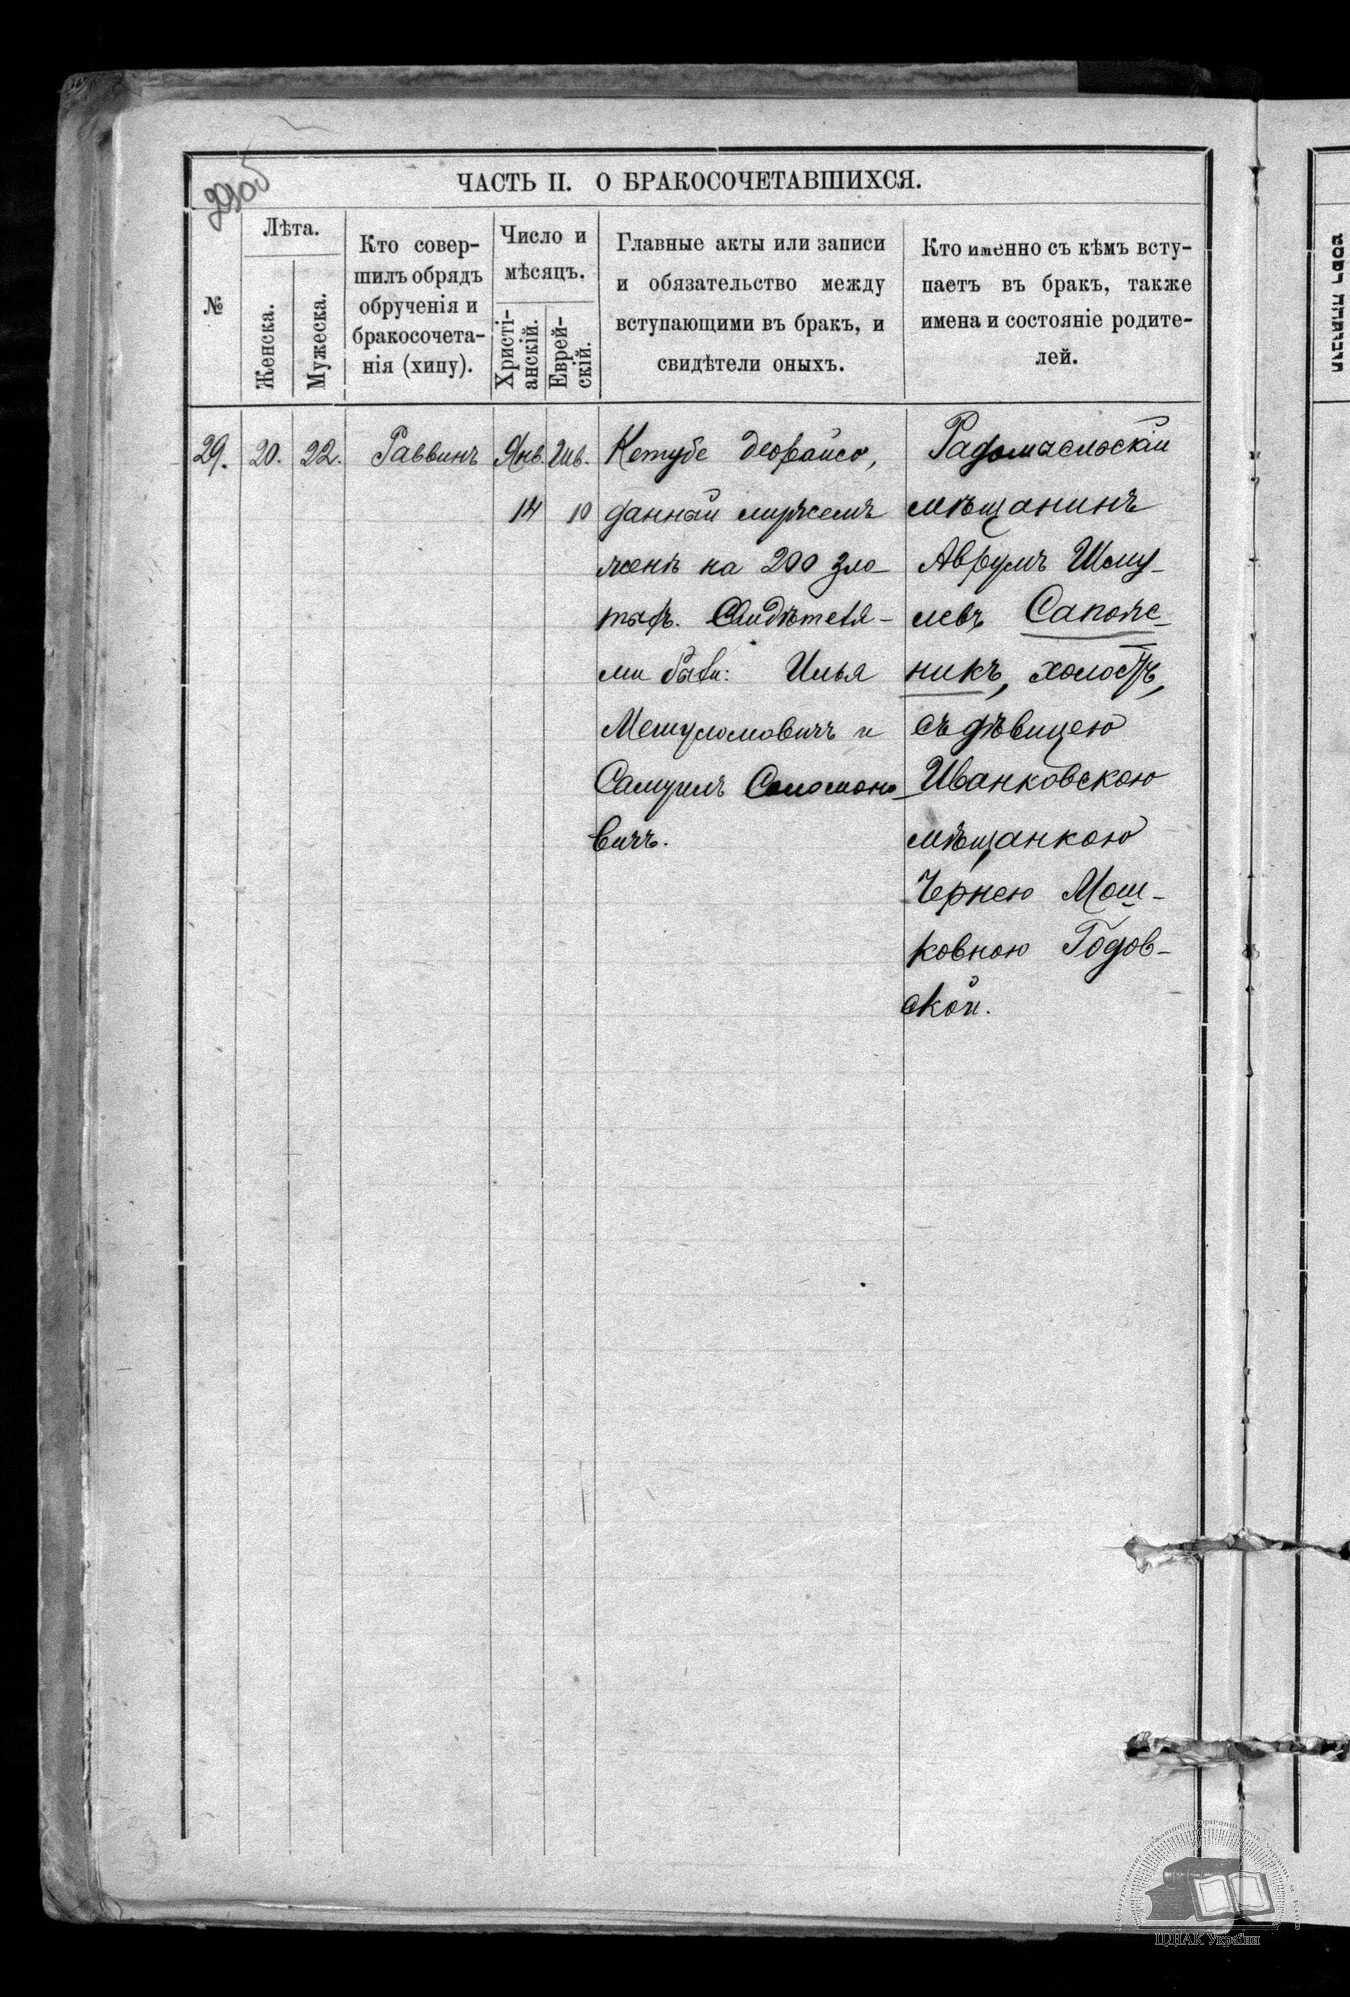 ЧАСТЬ II. О БРАКОСОЧЕТАВШИХСЯ.
№
Лѣта.
Женска.
Мужеска.
Кто совер-
шилъ обрядъ
обрученія и
бракосочета-
нія (хипу).
Число и
мѣсяцъ.
Христі-
анскій.
Еврей-
скій.
Главные акты или записи
и обязательство между
вступающими въ бракъ, и
свидѣтели оныхъ.
Кто именно съ кѣмъ всту-
паетъ въ бракъ, также
имена и состояніе родите-
лей.
29.
20.
22.
Раввинъ
Янв.
14
Шв.
10
Кетубе деорайсо,
данный мужемъ
женѣ на 200 зло-
тыхъ. Свидѣтеля-
ми были: Илья
Мешуломовичъ и
Самуилъ Соломоно
вичъ.
Радомысльскій
мѣщанинъ
Аврумъ Шму-
левъ Сапож-
никъ, холостъ,
съ дѣвицею
Иванковскою
мѣщанкою
Чернею Мош-
ковною Годов-
ской.
ЦДІАК України